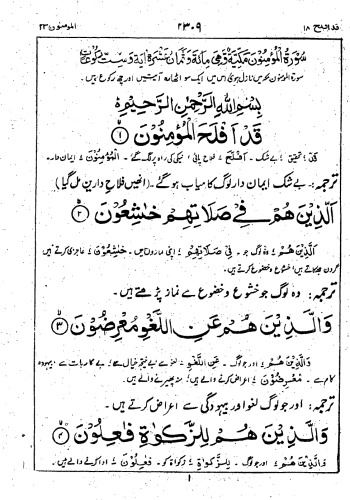 قد افلح ۱۸ ۲۳۰۹ المؤمنون ۲۳
سُوْرَةُ الْمُؤْمِنُوْنَ مَكِّيَّةٌ وَّهِيَ مِائَةٌ وَّثَمَانِ عَشْرَةَ اٰيَةً وَّسِتُّ رُكُوْعَاتٍ
سورۃ المؤمنون مکہ میں نازل ہوئی اس میں ایک سو اٹھارہ آیتیں اور چھ رکوع ہیں۔
بِسْمِ اللّٰهِ الرَّحْمٰنِ الرَّحِيْمِ
قَدْ اَفْلَحَ الْمُؤْمِنُوْنَ ۱
قَدْ : تحقیق ؛ بے شک۔ اَفْلَحَ : فلاح پائی ؛ نیکی کی راہ پر لگ گئے۔ الْمُؤْمِنُوْنَ : ایمان دار۔
ترجمہ : بے شک ایمان دار لوگ کامیاب ہو گئے۔ (انھیں فلاح دارین مل گیا)
الَّذِيْنَ هُمْ فِيْ صَلَاتِهِمْ خٰشِعُوْنَ ۲
الَّذِيْنَ هُمْ : وہ لوگ جو۔ فِيْ صَلَاتِهِمْ : اپنی نمازوں میں۔ خٰشِعُوْنَ : عاجزی کرتے ہیں
گردن جھکاتے ہیں؛ خشوع و خضوع کرتے ہیں۔
ترجمہ : وہ لوگ جو خشوع و خضوع سے نماز پڑھتے ہیں۔
وَالَّذِيْنَ هُمْ عَنِ اللَّغْوِ مُعْرِضُوْنَ ۳
وَالَّذِيْنَ هُمْ : اور جو لوگ۔ عَنِ اللَّغْوِ : لغو سے؛ بے کار بات سے؛ بیہودہ
کام سے۔ مُعْرِضُوْنَ : اعراض کرنے والے ہیں؛ منہ پھیرنے والے ہیں۔
ترجمہ : اور جو لوگ لغو اور بیہودگی سے اعراض کرتے ہیں۔
وَالَّذِيْنَ هُمْ لِلزَّكٰوةِ فٰعِلُوْنَ ۴
وَالَّذِيْنَ هُمْ : اور جو لوگ۔ لِلزَّكٰوةِ : زکوٰۃ کو۔ فٰعِلُوْنَ : ادا کرنے والے ہیں۔